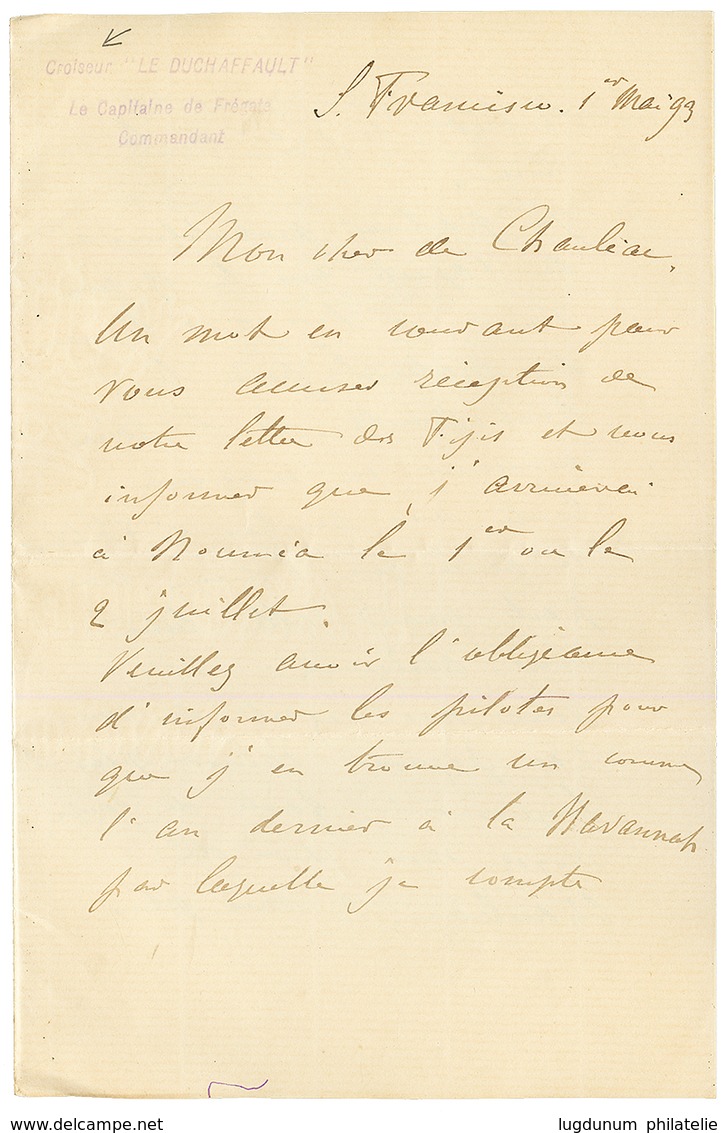 Croiseur "LE DUCHAFFAULT"
Le Capitaine de Frégate
Commandant
S. Francisco. 1er Mai 93
Mon cher de Chauliac,
Un mot en courant pour
vous accuser réception de
votre lettre des Fijis et vous
informer que j'arriverai
à Nouméa le 1er ou le
2 juillet.
Veuillez avoir l'obligeance
d'informer les pilotes pour
que j'en trouve un comme
l'an dernier à la Havannah
par laquelle je compte
www.delcampe.net
lugdunum philatelie